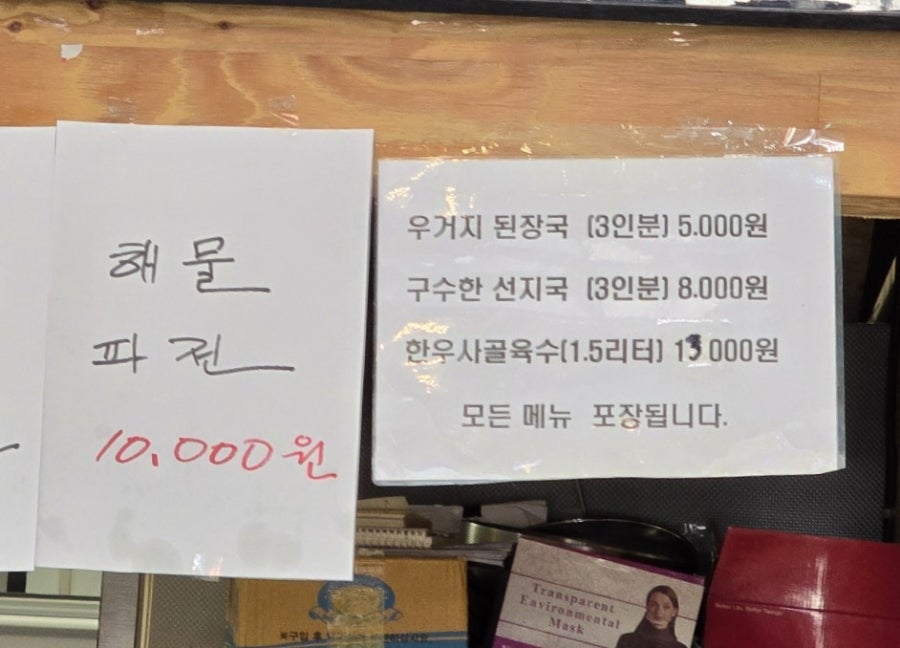 해물
파전
10.000원
우거지 된장국 (3인분) 5.000원
구수한 선지국 (3인분) 8.000원
한우사골육수(1.5리터) 13000원
모든 메뉴 포장됩니다.
Transparent
Environmental
Mask